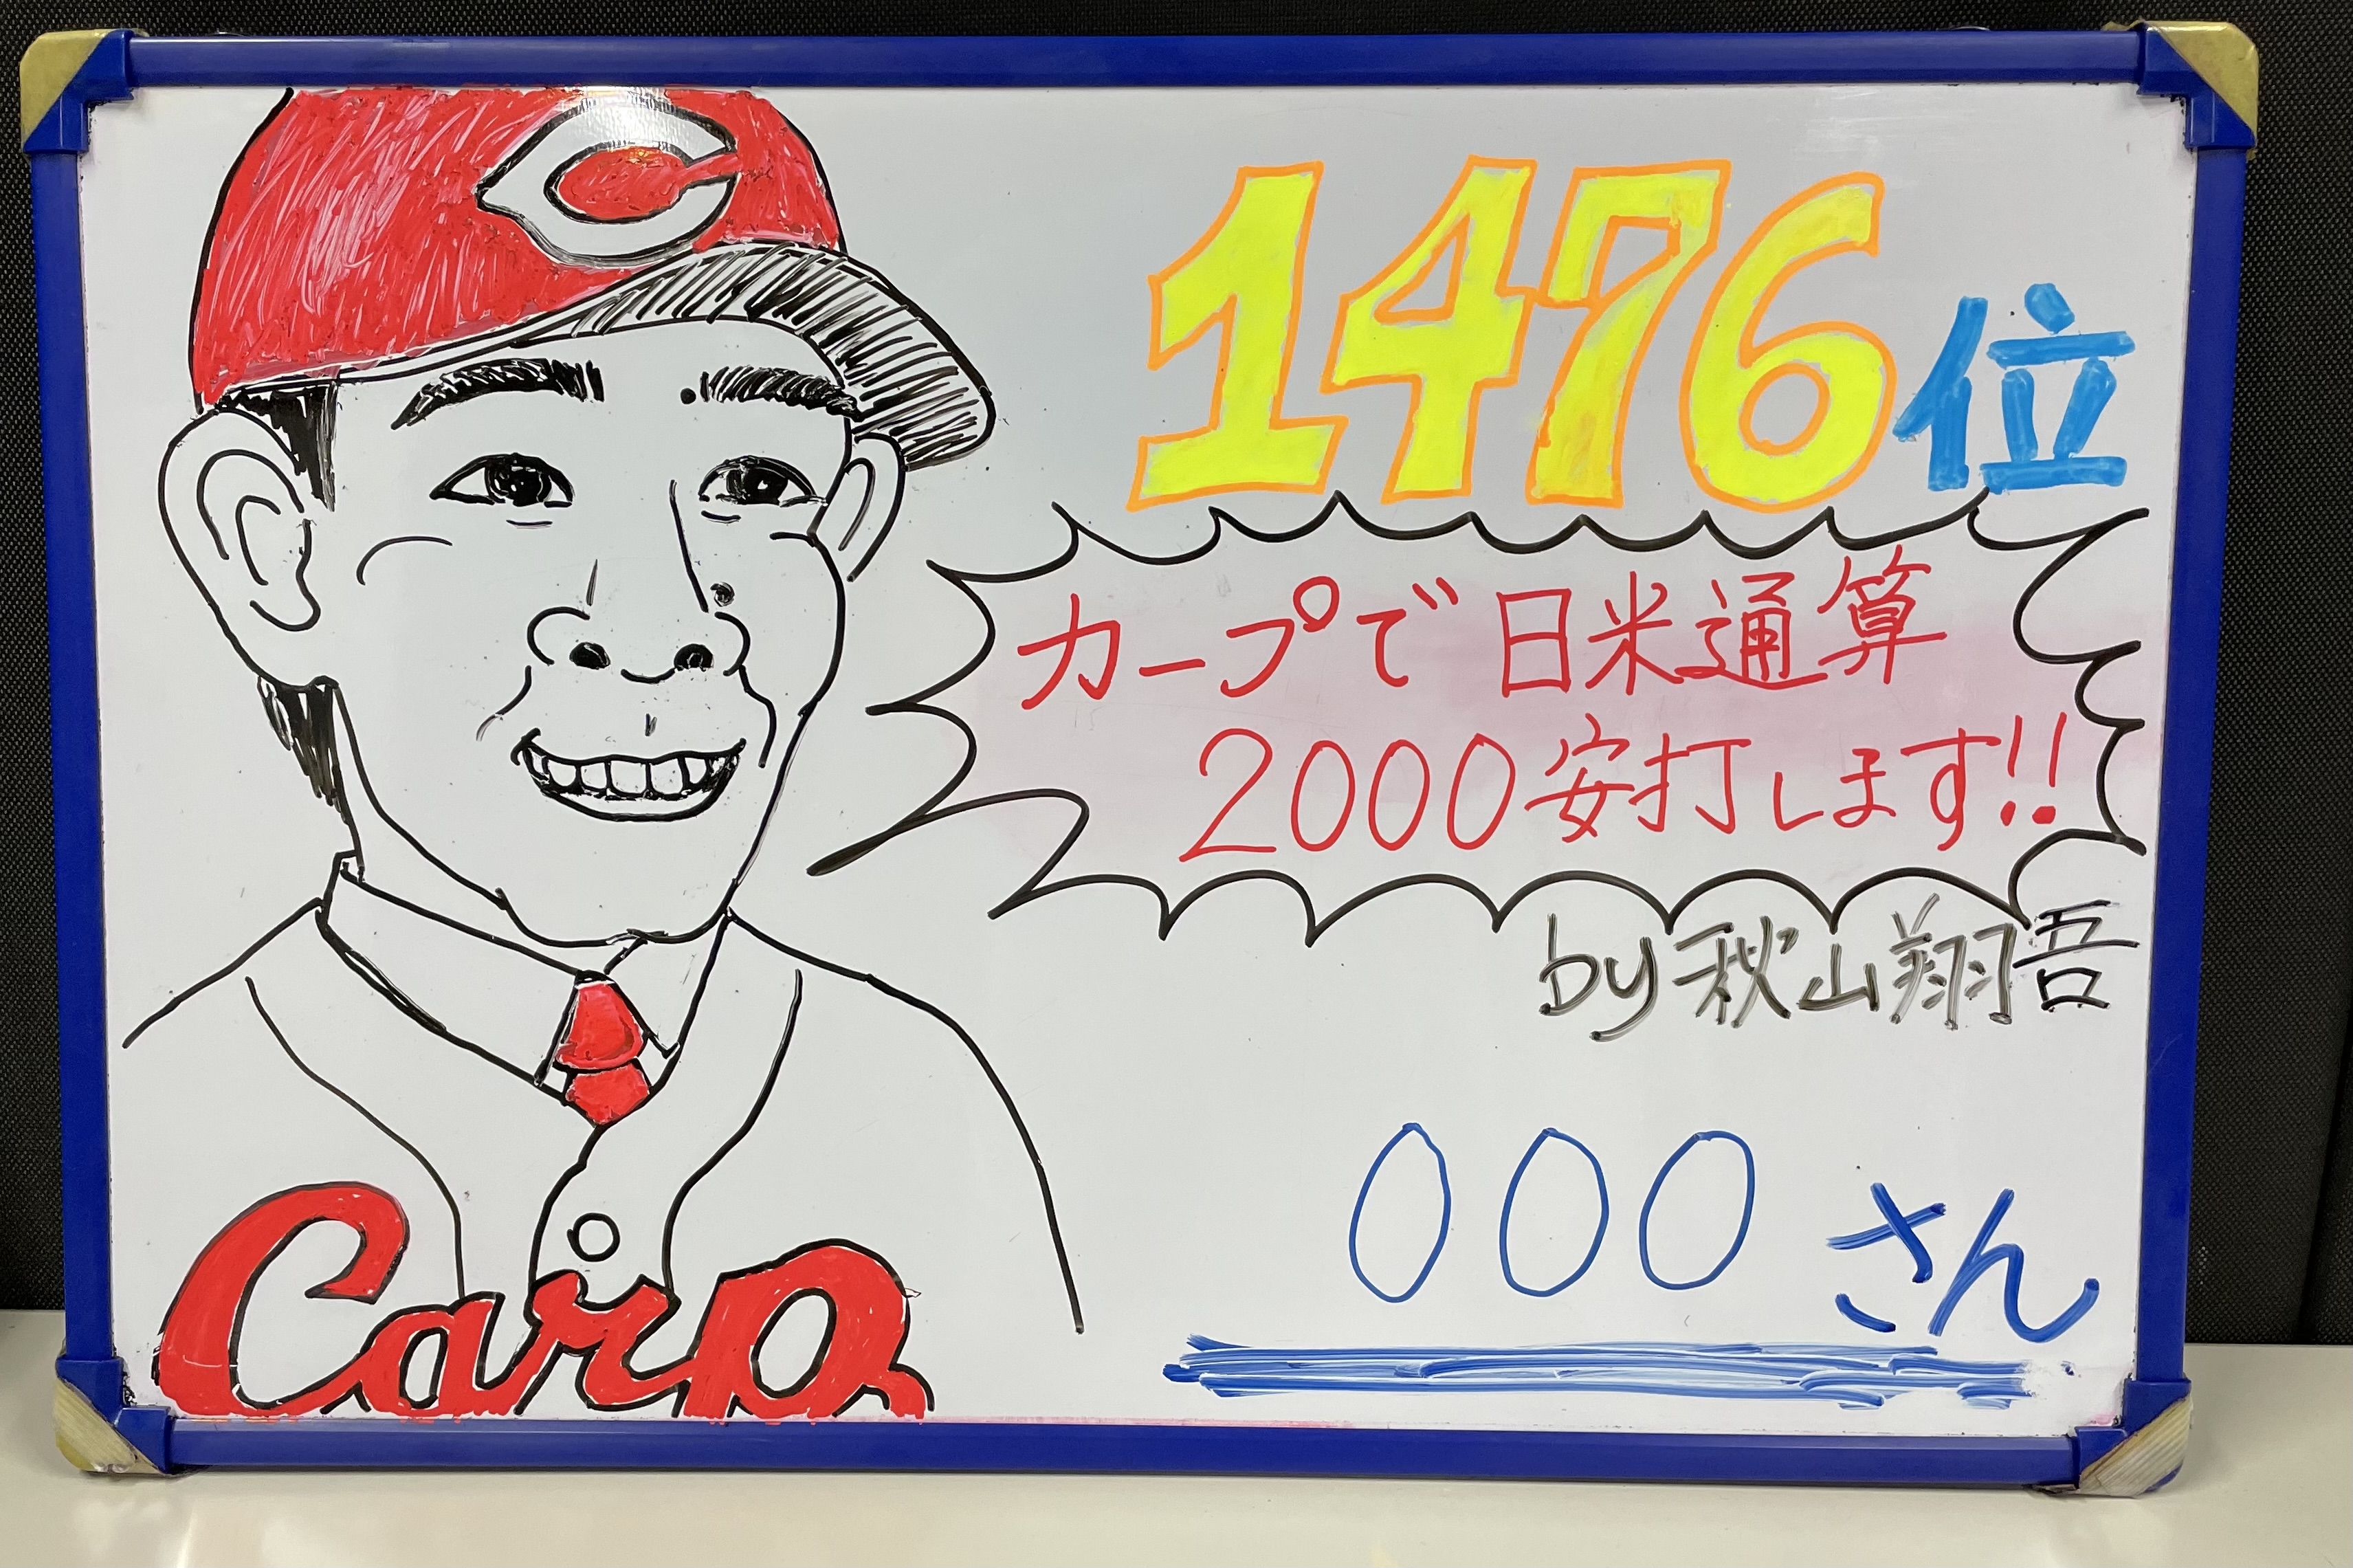 C
1476位
カープで日米通算
2000安打します!!
by 秋山翔吾
○○○さん
Carp